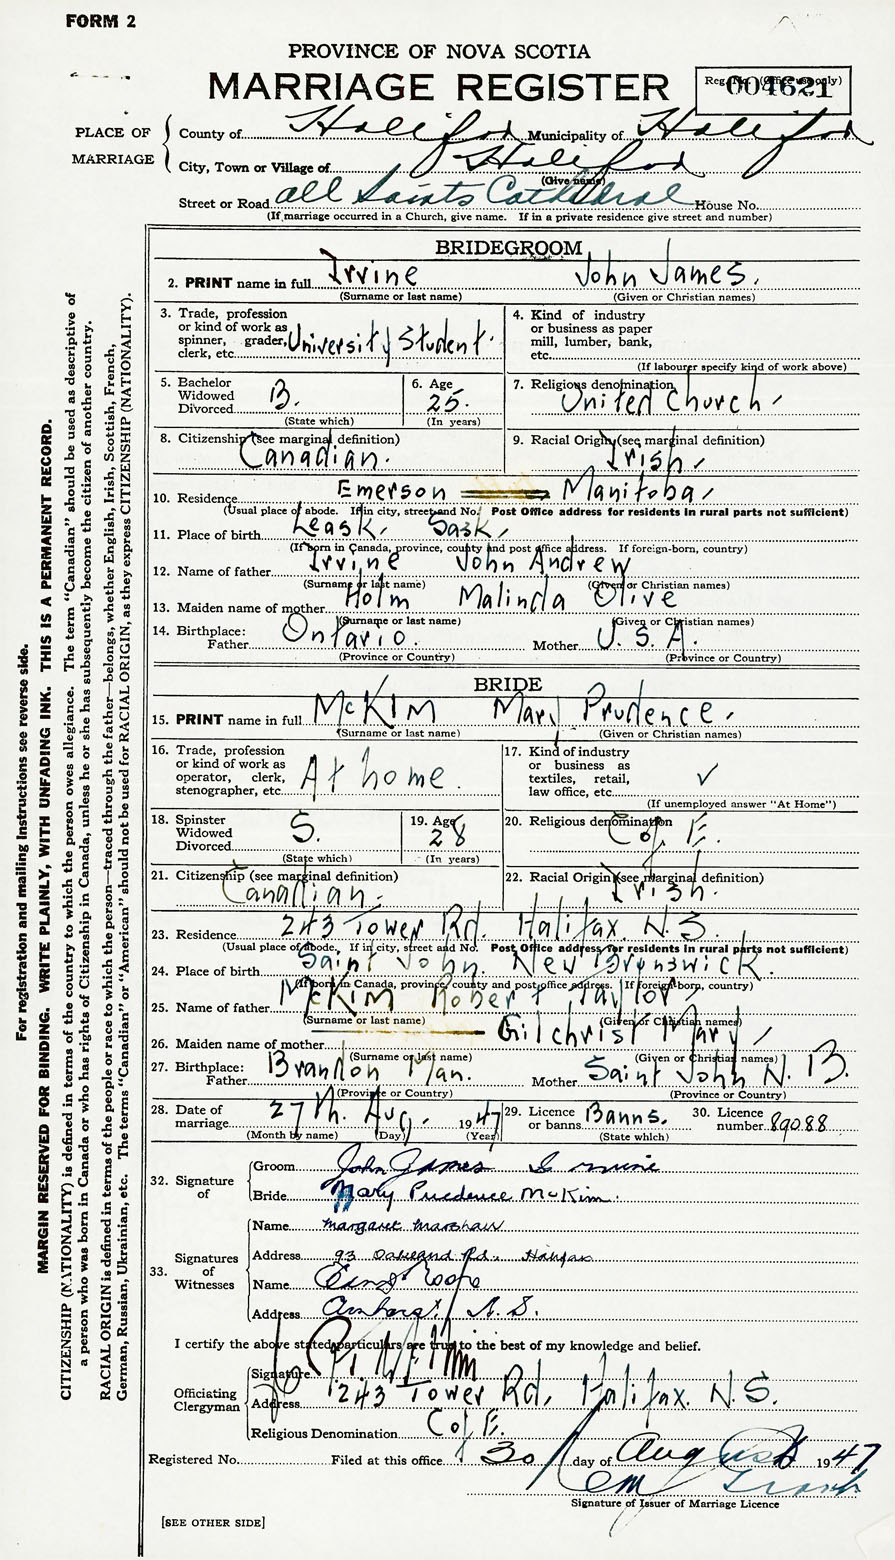 FORM 2
PROVINCE OF NOVA SCOTIA
MARRIAGE REGISTER
Reg. No. (Office use only)
004621
PLACE OF MARRIAGE
County of Halifax Municipality of Halifax
City, Town or Village of Halifax
(Give name)
Street or Road All Saints Cathedral House No.
(If marriage occurred in a Church, give name. If in a private residence give street and number)
BRIDEGROOM
2. PRINT name in full Irvine John James.
(Surname or last name) (Given or Christian names)
3. Trade, profession or kind of work as spinner, grader, clerk, etc. University Student.
4. Kind of industry or business as paper mill, lumber, bank, etc.
(If labourer specify kind of work above)
5. Bachelor Widowed Divorced B.
(State which)
6. Age 25.
(In years)
7. Religious denomination United Church
8. Citizenship (see marginal definition) Canadian.
9. Racial Origin (see marginal definition) Irish
10. Residence Emerson Manitoba
(Usual place of abode. If in city, street and No. Post Office address for residents in rural parts not sufficient)
11. Place of birth Leask, Sask,
(If born in Canada, province, county and post office address. If foreign-born, country)
12. Name of father Irvine John Andrew
(Surname or last name) (Given or Christian names)
13. Maiden name of mother Holm Malinda Olive
(Surname or last name) (Given or Christian names)
14. Birthplace: Father Ontario. Mother U.S.A.
(Province or Country) (Province or Country)
BRIDE
15. PRINT name in full McKIM Mary Prudence
(Surname or last name) (Given or Christian names)
16. Trade, profession or kind of work as operator, clerk, stenographer, etc. At home.
17. Kind of industry or business as textiles, retail, law office, etc. ✓
(If unemployed answer "At Home")
18. Spinster Widowed Divorced S.
(State which)
19. Age 28
(In years)
20. Religious denomination C of E.
21. Citizenship (see marginal definition) Canadian.
22. Racial Origin (see marginal definition) Irish.
23. Residence 243 Tower Rd. Halifax. N.S.
(Usual place of abode. If in city, street and No. Post Office address for residents in rural parts not sufficient)
24. Place of birth Saint John. New Brunswick.
(If born in Canada, province, county and post office address. If foreign-born, country)
25. Name of father McKIM Robert Taylor
(Surname or last name) (Given or Christian names)
26. Maiden name of mother Gilchrist Mary
(Surname or last name) (Given or Christian names)
27. Birthplace: Father Brandon Man. Mother Saint John N.B.
(Province or Country) (Province or Country)
28. Date of marriage 27th. Aug. 1947
(Month by name) (Day) (Year)
29. Licence or banns Banns.
(State which)
30. Licence number 89088
32. Signature of
Groom John James Irvine
Bride Mary Prudence McKim.
33. Signatures of Witnesses
Name Margaret Marshall
Address 93 Oakland Rd. Halifax
Name
Address Amherst, N.S.
I certify the above stated particulars are true to the best of my knowledge and belief.
Officiating Clergyman
Signature
Address 243 Tower Rd, Halifax. N.S.
Religious Denomination C of E.
Registered No. Filed at this office 30 day of August 1947
Signature of Issuer of Marriage Licence
[SEE OTHER SIDE]
For registration and mailing instructions see reverse side.
MARGIN RESERVED FOR BINDING. WRITE PLAINLY, WITH UNFADING INK. THIS IS A PERMANENT RECORD.
CITIZENSHIP (NATIONALITY) is defined in terms of the country to which the person owes allegiance. The term "Canadian" should be used as descriptive of
a person who was born in Canada or who has rights of Citizenship in Canada, unless he or she has subsequently become the citizen of another country.
RACIAL ORIGIN is defined in terms of the people or race to which the person—traced through the father—belongs, whether English, Irish, Scottish, French,
German, Russian, Ukrainian, etc. The terms "Canadian" or "American" should not be used for RACIAL ORIGIN, as they express CITIZENSHIP (NATIONALITY).